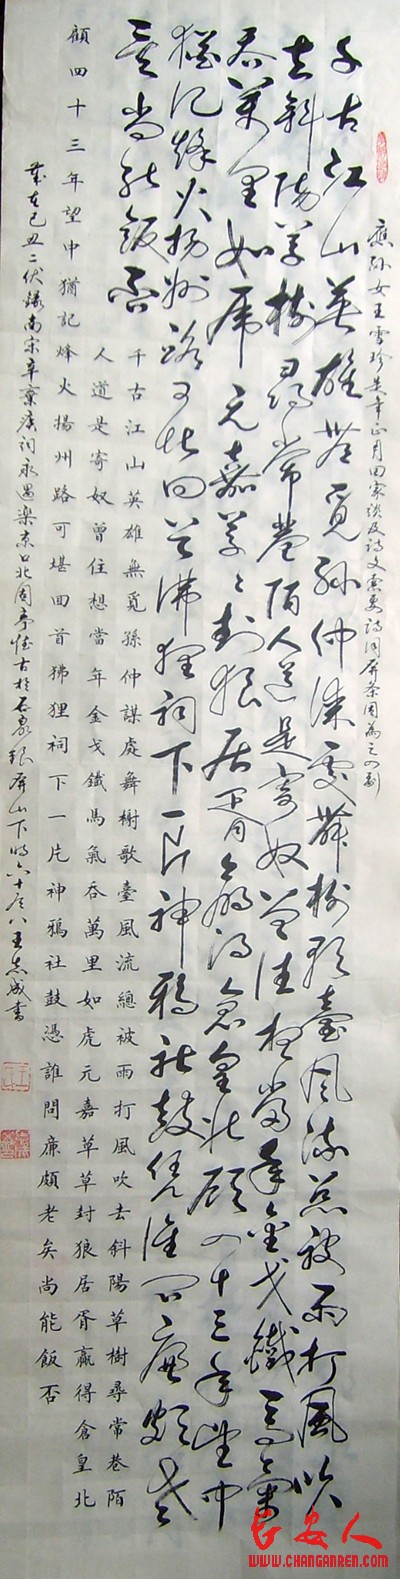 應孫女王雪珍年正月回家談及詩文索要詩詞屏条因為之
千古江山英雄無覓孫仲謀處舞榭歌臺風流總被雨打風吹
去斜陽草樹尋常巷陌人道是寄奴曾住想當年金戈鐵馬氣
吞萬里如虎元嘉草々封狼居胥贏得倉皇北顧四十三年望中
猶记烽火揚州路可堪回首佛狸祠下一片神鴉社鼓憑誰問廉頗老
矣尚能飯否
千古江山英雄無覓孫仲謀處舞榭歌臺風流總被雨打風吹去斜陽草樹尋常巷陌
人道是寄奴曾住想當年金戈鐵馬氣吞萬里如虎元嘉草草封狼居胥贏得倉皇北
顧四十三年望中猶記烽火揚州路可堪回首狒狸祠下一片神鴉社鼓憑誰問廉頗老矣尚能飯否
歲在己丑二伏錄南宋辛棄疾詞永遇樂京口北固亭懷古於石泉銀屏山下時六十八王志成書
长安人
WWW.CHANGANREN.COM